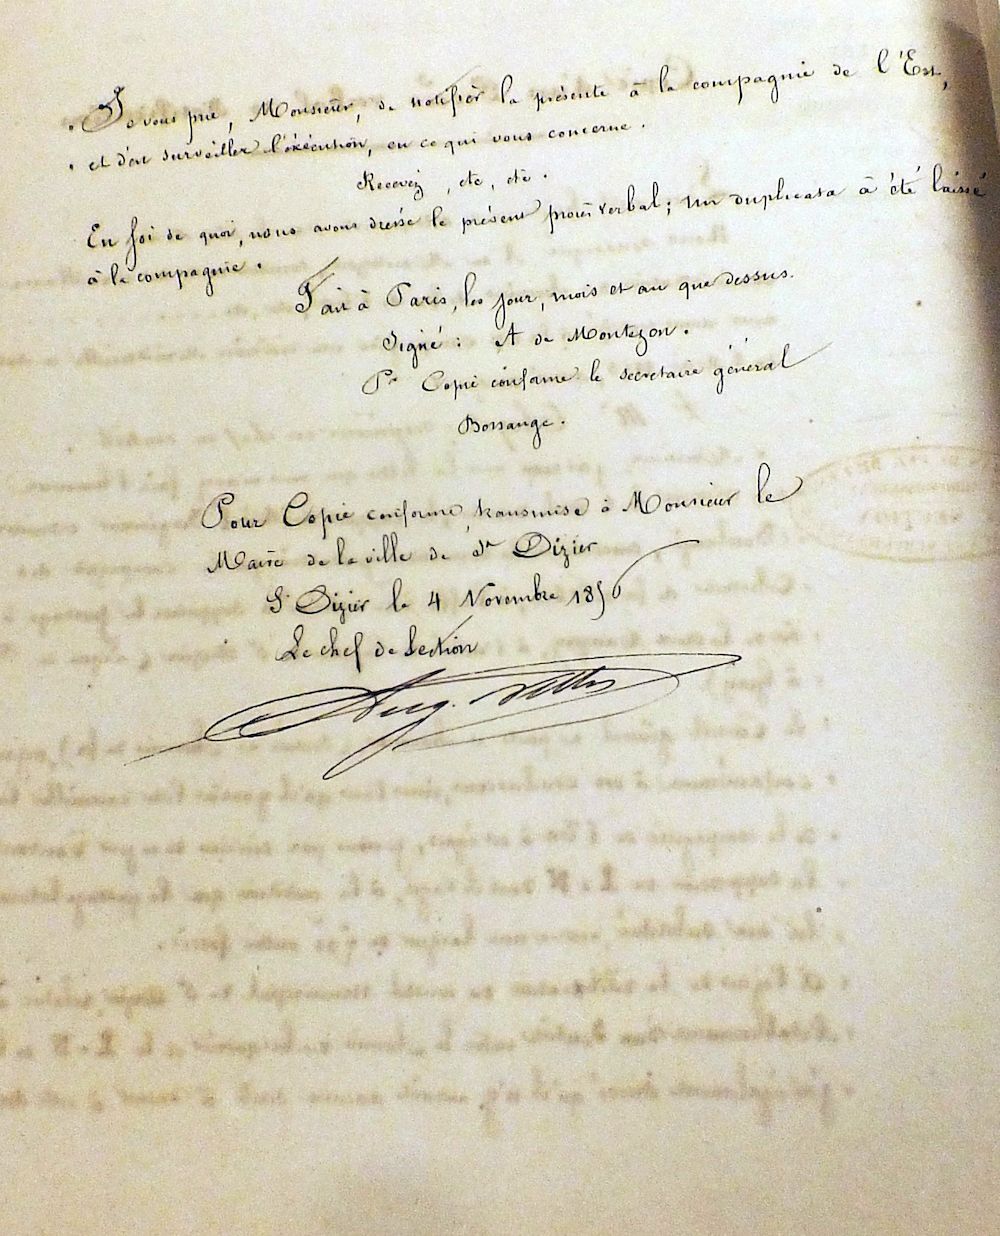 " Je vous prie, Monsieur, de notifier la présente à la compagnie de l'Est,
" et d'en surveiller l'éxécution, en ce qui vous concerne.
Recevez, etc, etc.
En foi de quoi, nous avons dressé le présent procès verbal; un duplicata à été laissé
à la compagnie.
Fait à Paris, les jour, mois et an que dessus.
Signé: A de Montezon.
Pr Copie conforme le secretaire général
Bossange.
Pour Copie conforme, transmise à Monsieur le
Maire de la ville de St Dizier
St Dizier le 4 Novembre 1856
Le chef de Section
Aug.